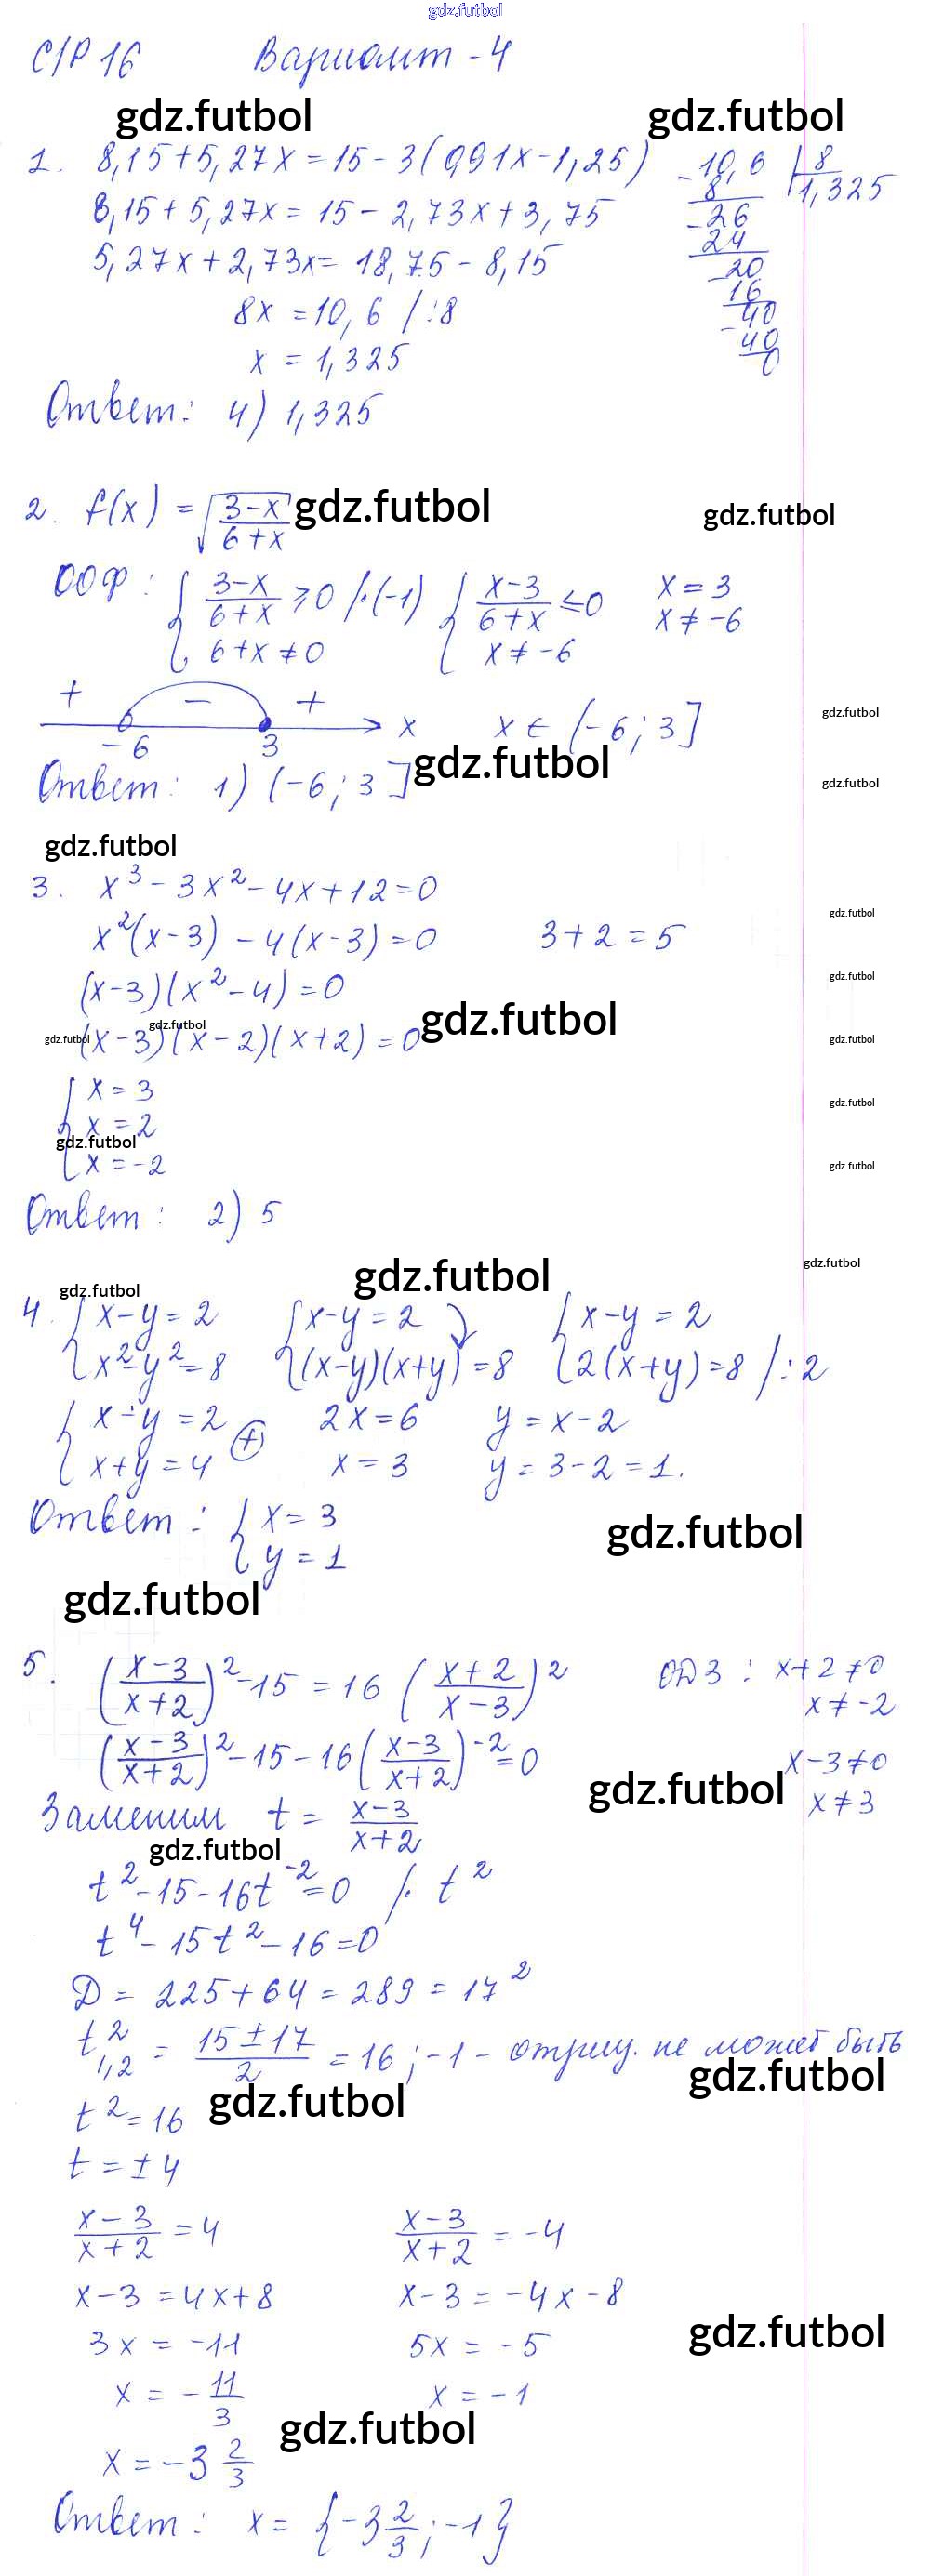 gdz.futbol
С/Р 16 Вариант - 4
gdz.futbol gdz.futbol
1. 8,15 + 5,27x = 15 - 3(0,91x - 1,25)
8,15 + 5,27x = 15 - 2,73x + 3,75
5,27x + 2,73x = 18,75 - 8,15
8x = 10,6 /:8
x = 1,325
10,6 | 8
8 1,325
-26
24
-20
16
-40
40
0
Ответ: 4) 1,325
2. f(x) = √((3-x)/(6+x)) gdz.futbol gdz.futbol
ООФ: { (3-x)/(6+x) ≥ 0 /·(-1) { (x-3)/(6+x) ≤ 0 x = 3
6+x ≠ 0 x ≠ -6 x ≠ -6
+ - +
-6 3 x x ∈ (-6; 3] gdz.futbol
Ответ: 1) (-6; 3] gdz.futbol gdz.futbol
gdz.futbol
3. x³ - 3x² - 4x + 12 = 0
gdz.futbol
x²(x-3) - 4(x-3) = 0 3 + 2 = 5
(x-3)(x²-4) = 0 gdz.futbol
gdz.futbol gdz.futbol
gdz.futbol (x-3)(x-2)(x+2) = 0 gdz.futbol
{ x = 3 gdz.futbol
x = 2
gdz.futbol
x = -2 gdz.futbol
Ответ: 2) 5
gdz.futbol gdz.futbol
gdz.futbol
4. { x-y = 2 { x-y = 2 { x-y = 2
x²-y² = 8 (x-y)(x+y) = 8 2(x+y) = 8 /:2
{ x-y = 2 ⊕ 2x = 6 y = x-2
x+y = 4 x = 3 y = 3-2 = 1.
Ответ: { x = 3 gdz.futbol
y = 1
gdz.futbol
5. ((x-3)/(x+2))² - 15 = 16 ((x+2)/(x-3))² ОДЗ: x+2 ≠ 0
x ≠ -2
((x-3)/(x+2))² - 15 - 16((x-3)/(x+2))⁻² = 0 x-3 ≠ 0
gdz.futbol x ≠ 3
Заменим t = (x-3)/(x+2)
gdz.futbol
t² - 15 - 16t⁻² = 0 /· t²
t⁴ - 15t² - 16 = 0
D = 225 + 64 = 289 = 17²
t²₁,₂ = (15 ± 17)/2 = 16; -1 - отриц. не может быть
gdz.futbol
t² = 16 gdz.futbol
t = ±4
(x-3)/(x+2) = 4 (x-3)/(x+2) = -4
x-3 = 4x+8 x-3 = -4x-8
3x = -11 5x = -5 gdz.futbol
x = -11/3 x = -1
gdz.futbol
x = -3 2/3
Ответ: x = {-3 2/3; -1}